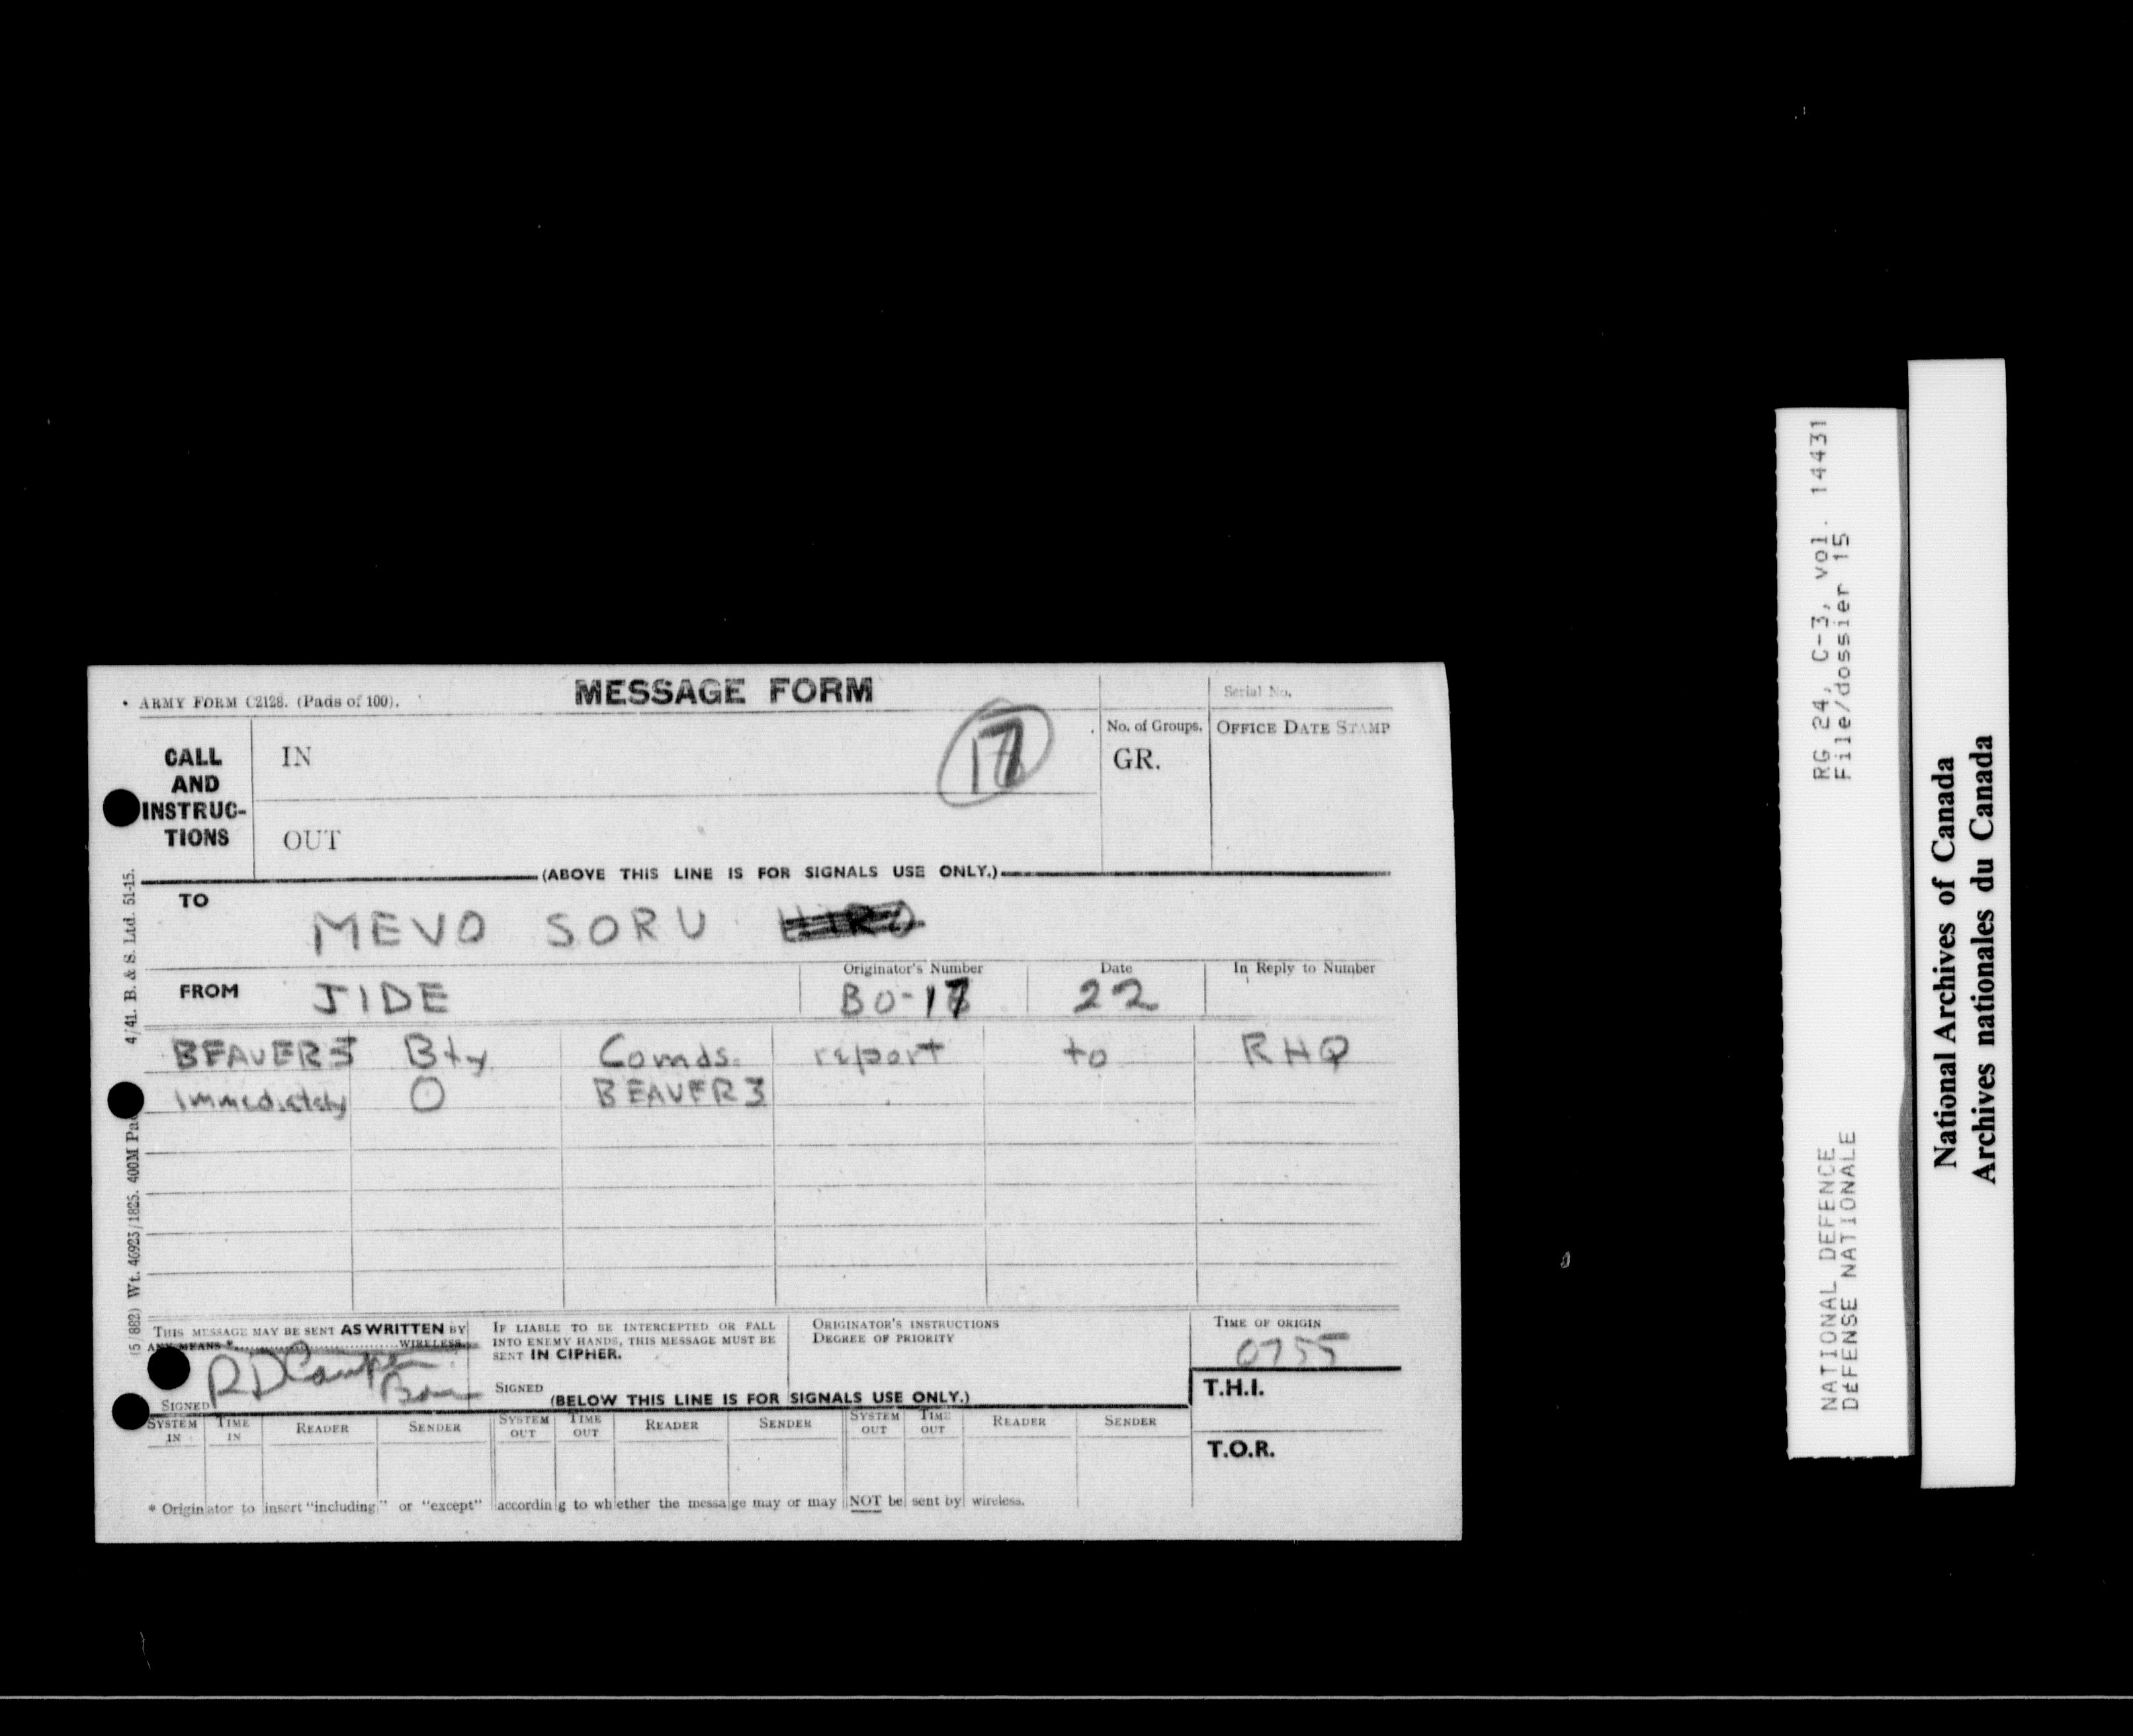 ARMY FORM C2128. (Pads of 100).
MESSAGE FORM
Serial No.
CALL AND INSTRUC-TIONS
IN
17
No. of Groups.
GR.
OFFICE DATE STAMP
OUT
(ABOVE THIS LINE IS FOR SIGNALS USE ONLY.)
TO
MEVO SORU
FROM
JIDE
Originator's Number
BO-17
Date
22
In Reply to Number
BEAVER 3 Bty Comds. report to RHQ
immediately O BEAVER 3
THIS MESSAGE MAY BE SENT AS WRITTEN BY
ANY MEANS * WIRELESS.
SIGNED
IF LIABLE TO BE INTERCEPTED OR FALL
INTO ENEMY HANDS, THIS MESSAGE MUST BE
SENT IN CIPHER.
SIGNED
ORIGINATOR'S INSTRUCTIONS
DEGREE OF PRIORITY
TIME OF ORIGIN
0755
(BELOW THIS LINE IS FOR SIGNALS USE ONLY.)
T.H.I.
SYSTEM IN TIME IN READER SENDER SYSTEM OUT TIME OUT READER SENDER SYSTEM OUT TIME OUT READER SENDER
T.O.R.
* Originator to insert "including" or "except" according to whether the message may or may NOT be sent by wireless.
(5/882) Wt. 46923/1825. 400M 4/41. B. & S. Ltd. 51-15.
RG 24, C-3, vol. 14431
File/dossier 15
NATIONAL DEFENCE
DÉFENSE NATIONALE
National Archives of Canada
Archives nationales du Canada